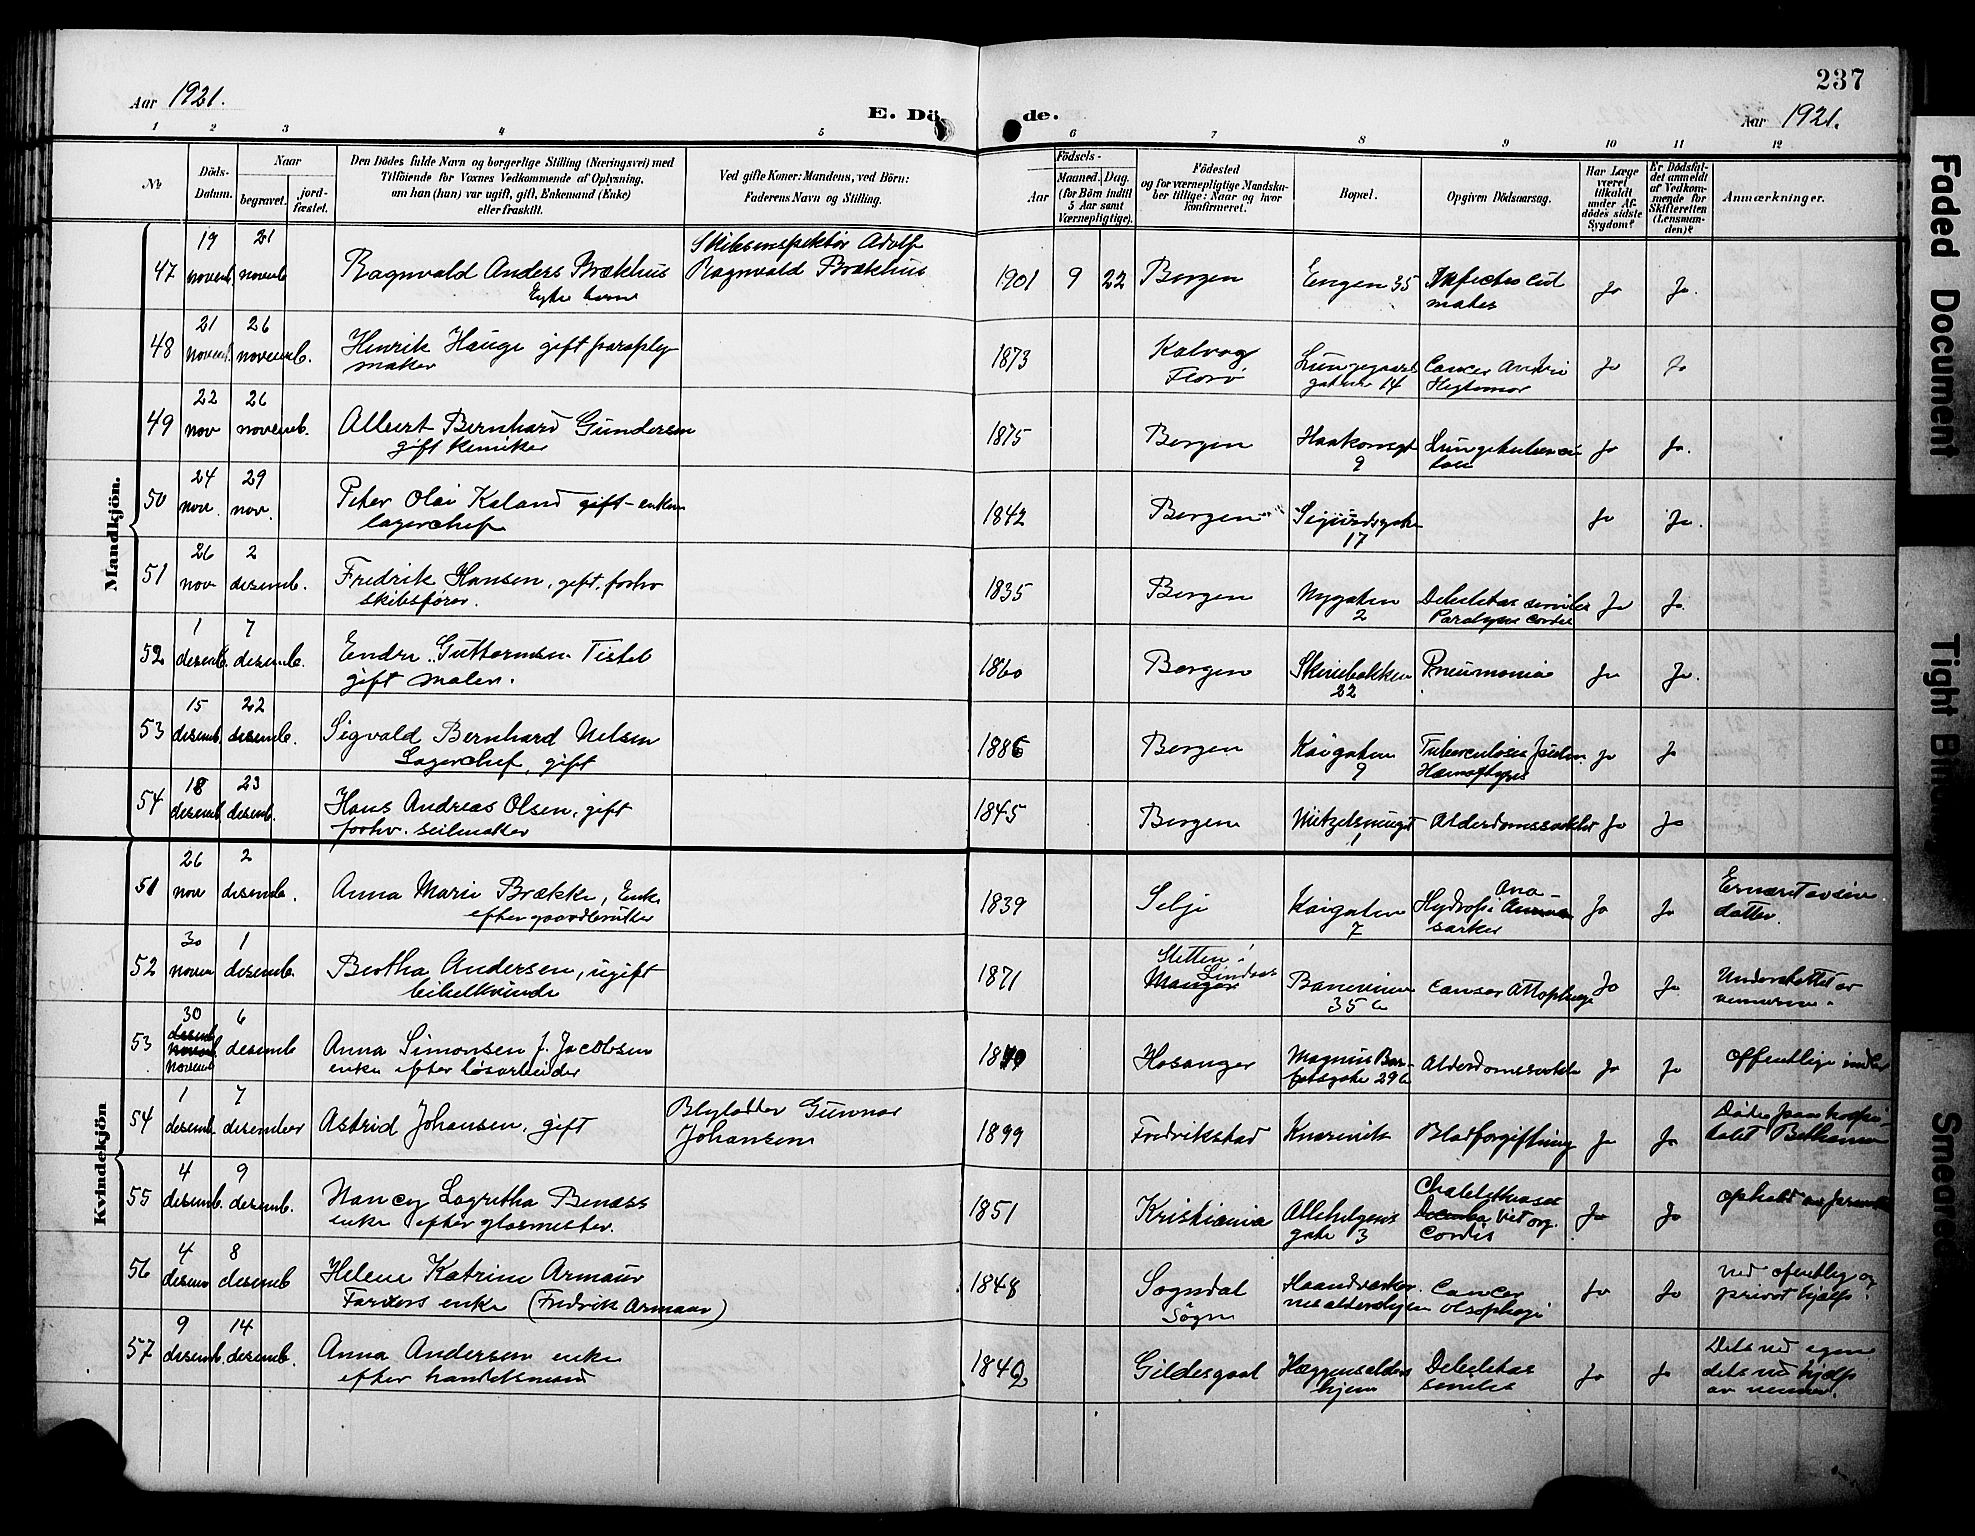 237
Aar 1921.
E. Dö de.
Aar 1921.
1 2 3 4 5 6 7 8 9 10 11 12
No
Döds-
Datum.
Naar
begravet.
jord-
fæstet.
Den Dödes fulde Navn og borgerlige Stilling (Næringsvei) med
Tilföiende for Voxnes Vedkommende af Oplysning,
om han (hun) var ugift, gift, Enkemand (Enke)
eller fraskilt.
Ved gifte Koner: Mandens, ved Börn:
Faderens Navn og Stilling.
Födsels-
Aar
Maaned. Dag.
(for Börn indtil
5 Aar samt
Værnepligtige).
Födested
og for værnepligtige Mandsku-
ber tillige: Naar og hvor
konfirmeret.
Bopæl.
Opgiven Dödsaarsag.
Har Læge
været
tilkaldt
under Af-
dödes sidste
Sygdom?
Er Dödsfal-
det anmeldt
af Vedkom-
mende for
Skifteretten
(Lensman-
den)?
Anmærkninger.
Mandkjön.
47 19 novemb. 21 novemb. Ragnvald Anders Brækhus
Skibsinspektør Adolf
Ragnvald Brækhus
1901 9 22 Bergen Engen 35 Ja Ja.
48 21 novemb. 26 novemb. Henrik Hauge gift paraply
maker
1873 Kalvag
Florø
Lungegaards
gaten 14
Cancer Ja Ja
49 22 nov 26 novemb. Albert Bernhard Gundersen
gift kemiker
1875 Bergen Haakonsgt
9
Ja Ja.
50 24 nov. 29 nov. Peter Olai Kaland gift - enkem
lagerchef
1842 Bergen Sigurdsgate
17
Ja Ja.
51 26 nov 2 desemb. Fredrik Hansen, gift, forhv
skibsfører.
1835 Bergen Nygaten
2
Debilitas senilis
Paralyse cordis
Ja Ja.
52 1 desemb. 7 desemb. Endre Guttormsen Tistel
gift maler.
1860 Bergen Skivebakken
22
Pneumonia Ja Ja.
53 15 desemb. 22 desemb. Sigvald Bernhard Nelsen
Lagerchef, gift
1886 Bergen Kaigaten
9
Tuberculosis pulm
Hæmoftyse
Ja Ja
54 18 desemb 23 desemb. Hans Andreas Olsen, gift
forhv. seilmaker
1845 Bergen Nitzelsmugt
1
Alderdomssvakhet Ja Ja
Kvindekjön
51 26 nov 2 desemb. Anna Marie Brække, Enke
efter gaardbruker
1839 Selje Kaigaten
7
Hydrops Ana
sarka
Ja Ja
Ernæret av sin
datter.
52 30 novem 1 desemb. Bertha Andersen, ugift
bibelkvinde
1871 Sletten i
Lindaas
Manger
35 b
Cancer Ja Ja
Understøttet av
vennerne.
53 30 desemb novemb novemb 6 desemb Anna Simonsen f. Jacobsen
enke efter løsarbeider
Hosanger Magnus Bar-
fotsgate 29 b
Alderdomssvakhe Ja Ja
offentlige midler
54 1 desemb. 7 desember Astrid Johansen, gift
Gunnar
Johansen
1899 Fredrikstad Knarevik Blodforgiftning Ja Ja
Døde paa hospi-
talet Bethanien
55 4 desemb. 9 desemb. Nancy Lagretha Benæss
enke efter glasmester.
1851 Kristiania Allehelgens
gate 3
Vit org.
Cordis
Ja Ja
56 4 desem 8 desemb Helene Katrine Armauer
Farvers enke (Fredrik Armauer)
1848 Sogndal
Sogn
Haandverker
nes aldershjem
Cancer
Ja Ja
ved offentlig og
privat hjælp.
57 9 desemb. 14 desemb. Anna Andersen enke
efter handelsmand
1842 Gildesgaal Hæggensalders
hjem
Debilitas
senilis
Ja Ja
Dels ved egne
dels ved hjælp
av venner.
Faded Document
Tight Bin
Smeared